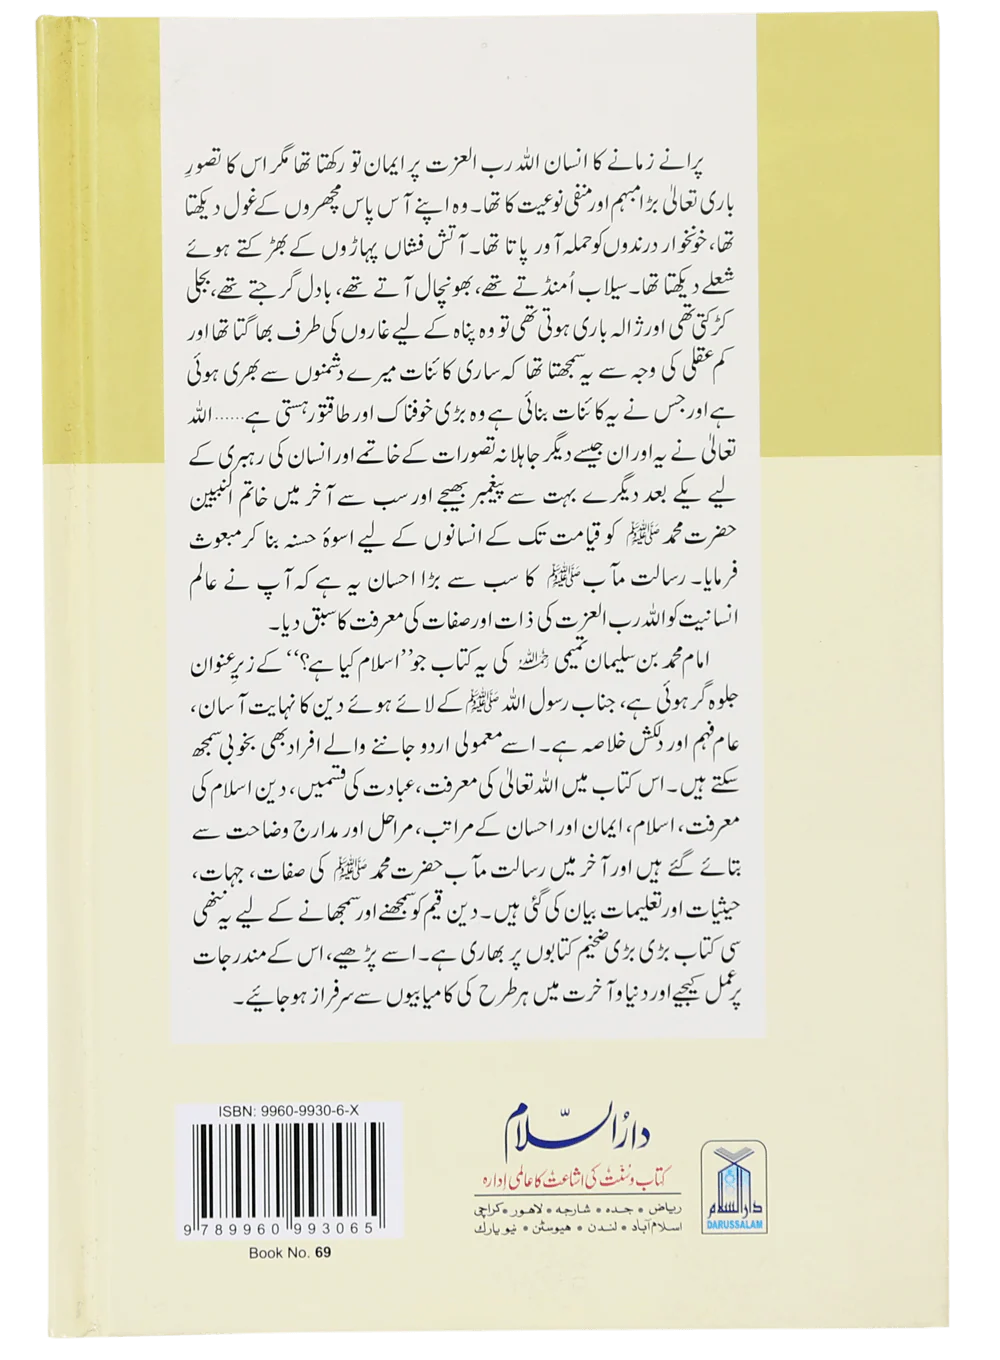 پرانے زمانے کا انسان اللہ رب العزت پر ایمان تو رکھتا تھا مگر اس کا تصورِ
باری تعالیٰ بڑا مبہم اور منفی نوعیت کا تھا۔ وہ اپنے آس پاس مچھروں کے غول دیکھتا
تھا، خونخوار درندوں کو حملہ آور پاتا تھا۔ آتش فشاں پہاڑوں کے بھڑکتے ہوئے
شعلے دیکھتا تھا۔ سیلاب اُمنڈتے تھے، بھونچال آتے تھے، بادل گرجتے تھے، بجلی
کڑکتی تھی اور ژالہ باری ہوتی تھی تو وہ پناہ کے لیے غاروں کی طرف بھاگتا تھا اور
کم عقلی کی وجہ سے یہ سمجھتا تھا کہ ساری کائنات میرے دشمنوں سے بھری ہوئی
ہے اور جس نے یہ کائنات بنائی ہے وہ بڑی خوفناک اور طاقتور ہستی ہے...... اللہ
تعالیٰ نے یہ اور ان جیسے دیگر جاہلانہ تصورات کے خاتمے اور انسان کی رہبری کے
لیے یکے بعد دیگرے بہت سے پیغمبر بھیجے اور سب سے آخر میں خاتم النبیین
حضرت محمد ﷺ کو قیامت تک کے انسانوں کے لیے اسوۂ حسنہ بنا کر مبعوث
فرمایا۔ رسالت مآب ﷺ کا سب سے بڑا احسان یہ ہے کہ آپ نے عالم
انسانیت کو اللہ رب العزت کی ذات اور صفات کی معرفت کا سبق دیا۔
امام محمد بن سلیمان تمیمی رحمہ اللہ کی یہ کتاب جو ’’اسلام کیا ہے؟‘‘ کے زیرِ عنوان
جلوہ گر ہوئی ہے، جناب رسول اللہ ﷺ کے لائے ہوئے دین کا نہایت آسان،
عام فہم اور دلکش خلاصہ ہے۔ اسے معمولی اردو جاننے والے افراد بھی بخوبی سمجھ
سکتے ہیں۔ اس کتاب میں اللہ تعالیٰ کی معرفت، عبادت کی قسمیں، دین اسلام کی
معرفت، اسلام، ایمان اور احسان کے مراتب، مراحل اور مدارج وضاحت سے
بتائے گئے ہیں اور آخر میں رسالت مآب حضرت محمد ﷺ کی صفات، جہات،
حیثیات اور تعلیمات بیان کی گئی ہیں۔ دین قیم کو سمجھنے اور سمجھانے کے لیے یہ ننھی
سی کتاب بڑی بڑی ضخیم کتابوں پر بھاری ہے۔ اسے پڑھیے، اس کے مندرجات
پر عمل کیجیے اور دنیا و آخرت میں ہر طرح کی کامیابیوں سے سرفراز ہو جائیے۔
دارُالسّلام
کتاب و سُنّت کی اشاعت کا عالمی ادارہ
ریاض • جدہ • شارجہ • لاہور • کراچی
اسلام آباد • لندن • ہیوسٹن • نیو یارک
دارالسلام
DARUSSALAM
ISBN: 9960-9930-6-X
9 789960 993065
Book No. 69